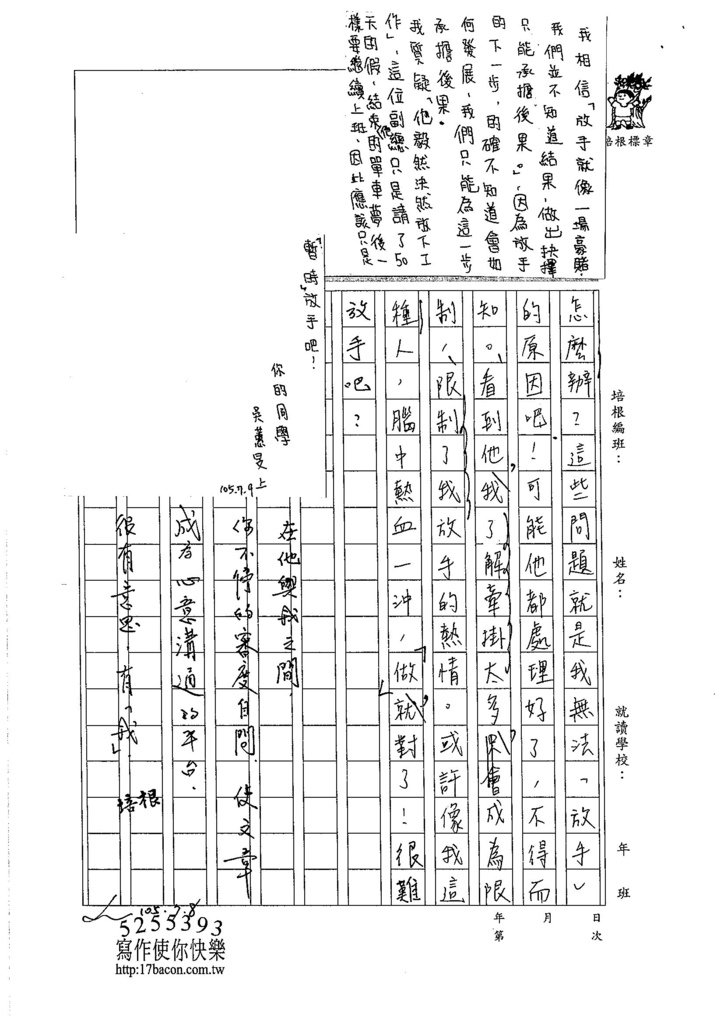 我相信「放手就像一場豪賭,
我們並不知道結果,做出抉擇
只能承擔後果。」,因為放手
的下一步,的確不知道會如
何發展,我們只能為這一步
承擔後果。
我質疑「他毅然決然放下工
作」,這位副總只是請了50
天的假,結束他的單車夢後一
樣要繼續上班,因此應該只是
「暫時」放手吧!
你的同學
吳蕙旻上
105.7.9
培根標章
培根編班:
姓名:
就讀學校:
年 班
年 月 日
第 次
怎麼辦?這些問題就是我無法「放手」
的原因吧!可能他都處理好了,不得而
知。看到他,我了解牽掛太多,會成為限
制,限制了我放手的熱情。或許像我這
種人,腦中熱血一沖,「做,就對了!」很難
放手吧?
在他與我之間,
你不停的審度自問,使文章
成為心意溝通的平台.
很有意思.有「我」.
培根
105.7.8
5255393
寫作使你快樂
http:17bacon.com.tw